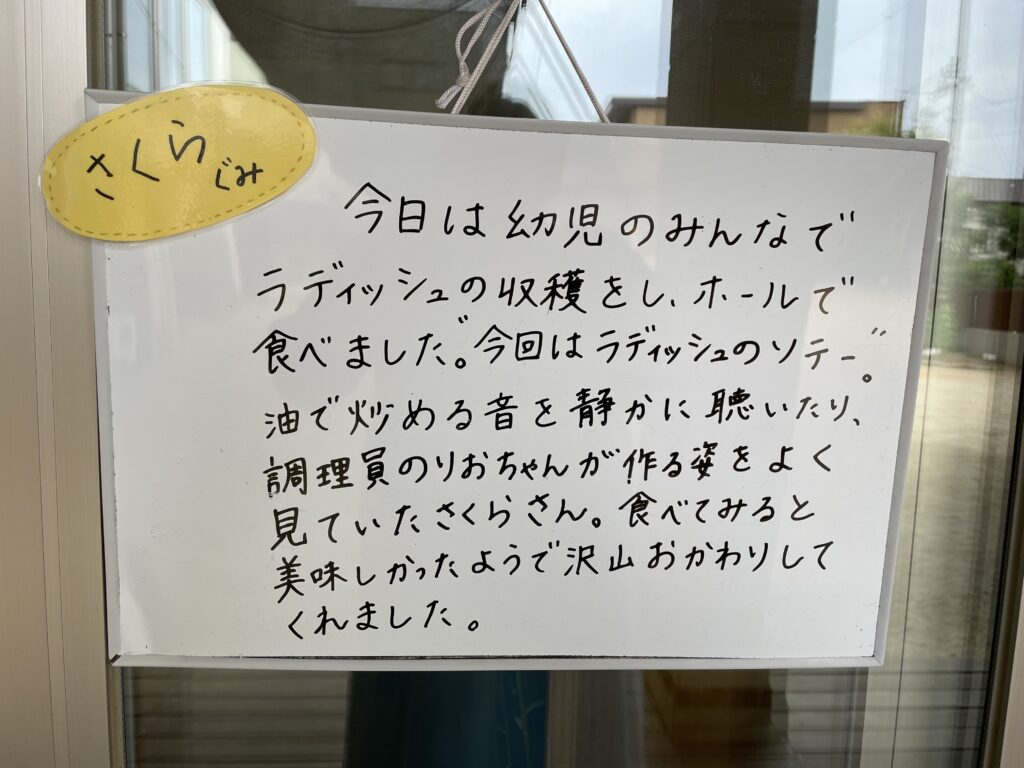 さくらぐみ
今日は幼児のみんなで
ラディッシュの収穫をし、ホールで
食べました〟。今回はラディッシュのソテー〟。
油で炒める音を静かに聴いたり、
調理員のりおちゃんが作る姿をよく
見ていたさくらさん。食べてみると
美味しかったようで沢山おかわりして
くれました。